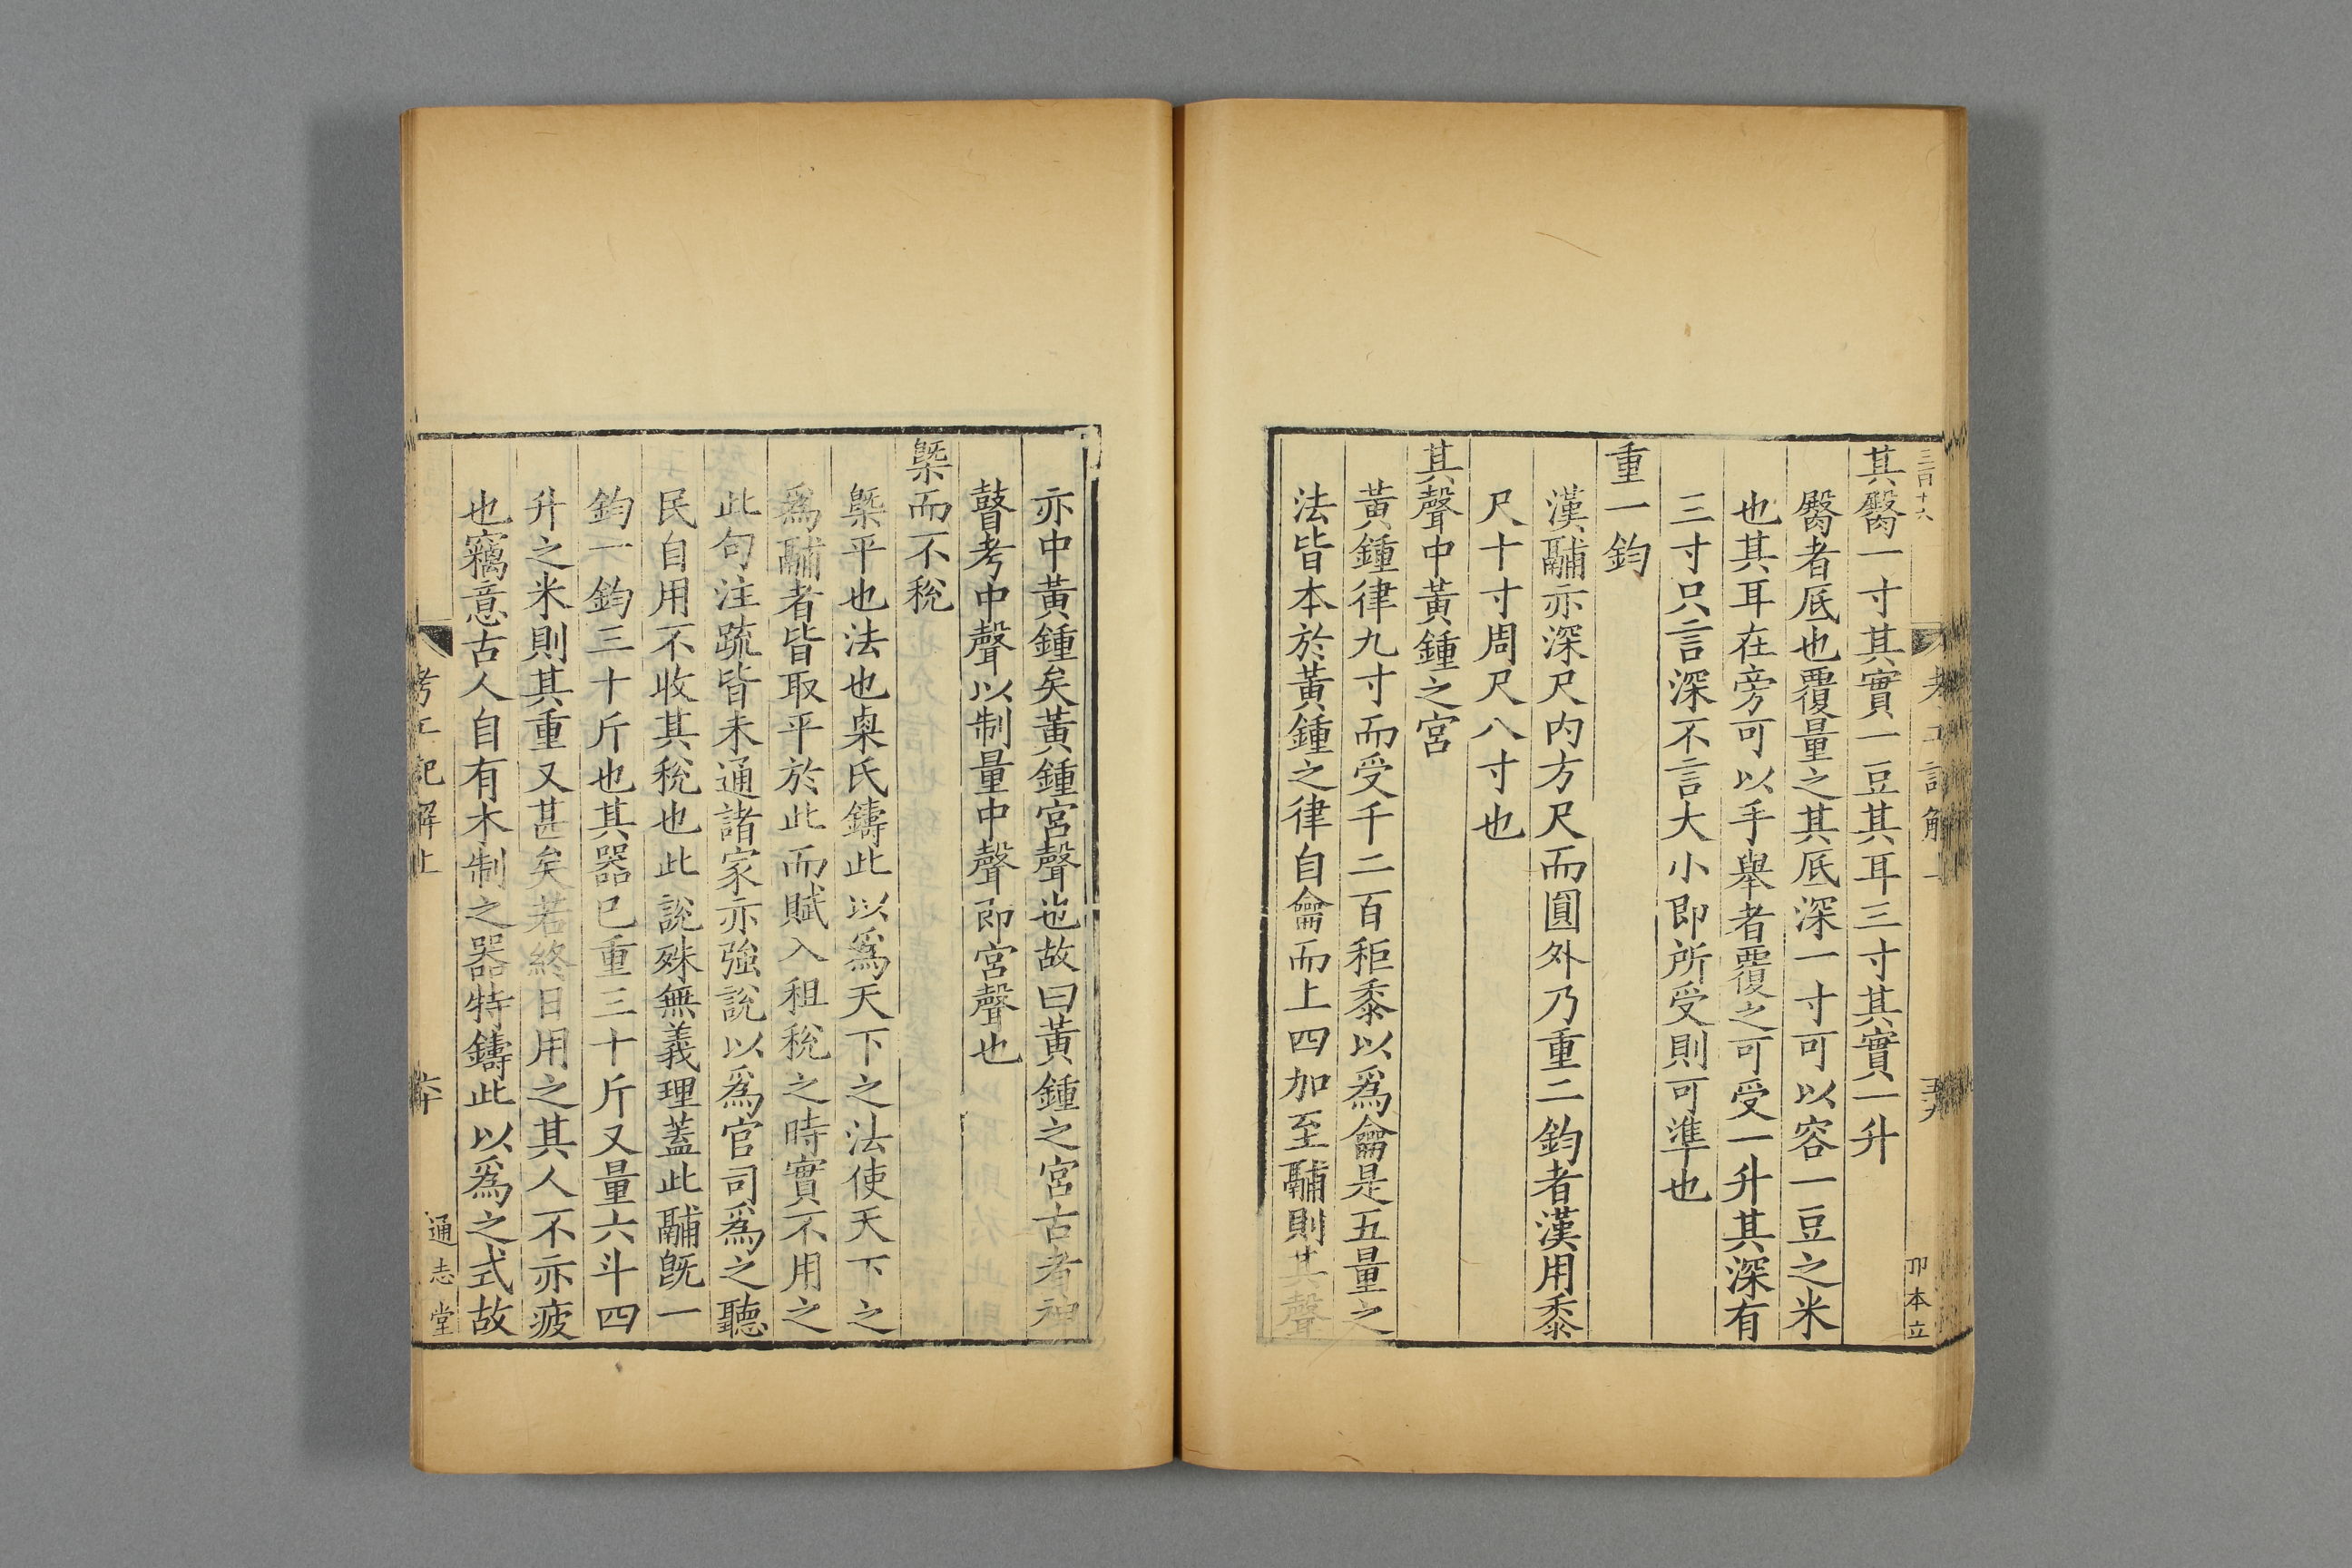 三百十六
考工記解上
五九
卭本立
其臋一寸其實一豆其耳三寸其實一升
臋者底也覆量之其底深一寸可以容一豆之米
也其耳在旁可以手舉者覆之可受一升其深有
三寸只言深不言大小即所受則可準也
重一鈞
漢鬴亦深尺内方尺而圓外乃重二鈞者漢用黍
尺十寸周尺八寸也
其聲中黃鍾之宮
黃鍾律九寸而受千二百秬黍以爲龠是五量之
法皆本於黃鍾之律自龠而上四加至鬴則其聲
亦中黃鍾矣黃鍾宮聲也故曰黃鍾之宮古者神
瞽考中聲以制量中聲即宮聲也
槩而不稅
槩平也法也㮚氏鑄此以爲天下之法使天下之
爲鬴者皆取平於此而賦入租稅之時實不用之
此句注疏皆未通諸家亦強說以爲官司爲之聽
民自用不收其稅也此說殊無義理蓋此鬴旣一
鈞一鈞三十斤也其器已重三十斤又量六斗四
升之米則其重又甚矣若終日用之其人不亦疲
也竊意古人自有木制之器特鑄此以爲之式故
考工記解上
六十
通志堂